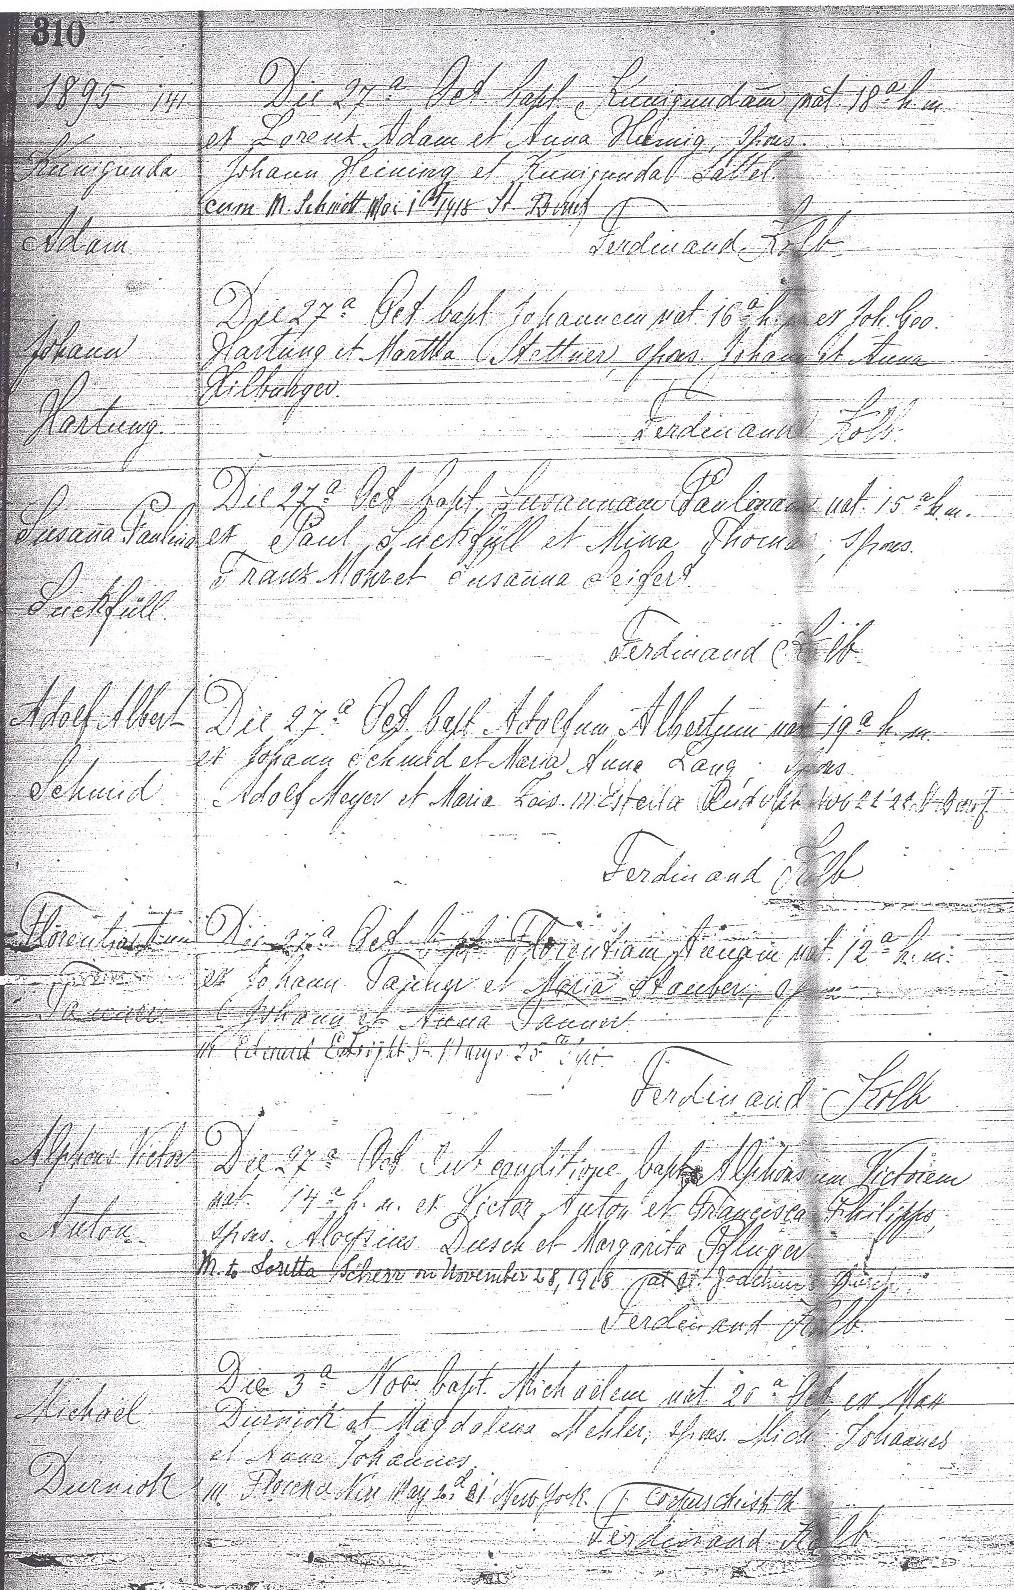 310
1895 141 Die 27ª Oct bapt Kunigundam nat 18ª h. m.
Kunigunda ex Lorenz Adam et Anna Heinig, spons.
Johann Heining et Kunigunda Sattel.
cum M. Schmitt 1st 1918 St
Adam Ferdinand Kolb
Die 27ª Oct bapt Johannem nat 16ª h. ex Joh. Geo.
Johann Hartung et Martha Stettner, spons. Johann et Anna
Hilburger.
Hartung. Ferdinand Kolb.
Die 27ª Oct bapt. Susannam Paulinam nat. 15ª h. m.
Susana Paulina ex Paul Suckfüll et Mina Thoma, spons.
Franz Mohr et Susanna Seifert
Suckfüll. Ferdinand Kolb
Adolf Albert Die 27ª Oct. bapt Adolfum Albertum nat 19ª h. m.
ex Johann Schmid et Maria Anna Lang, spons
Schmid Adolf Meyer et Maria
Ferdinand Kolb
Florentia Die 27ª Oct bapt Florentiam Annam nat. 12ª h. m.
ex Johann Tanner et Maria Stauber, spons
Tanner Johann et Anna Tanner.
m Edward
Ferdinand Kolb
Alphons Victor Die 27ª Oct sub conditione bapt. Alphonsum Victorem
nat. 14ª h. m. ex Victor Anton et Francisca Philipps,
Anton. spons. Aloysius Dusch et Margarita Pfluger
M. to Loretta Scherr on November 28, 1918 at St. Joachim's
Ferdinand Kolb.
Die 3ª Nov. bapt. Michaelem nat 20ª Oct. ex Max
Michael Durniok et Magdalena Mehler, spons. Mich Johannes
et Anna Johannes.
Durniok m. Florence May 21 New York. Corpus Christi Ch
Ferdinand Kolb